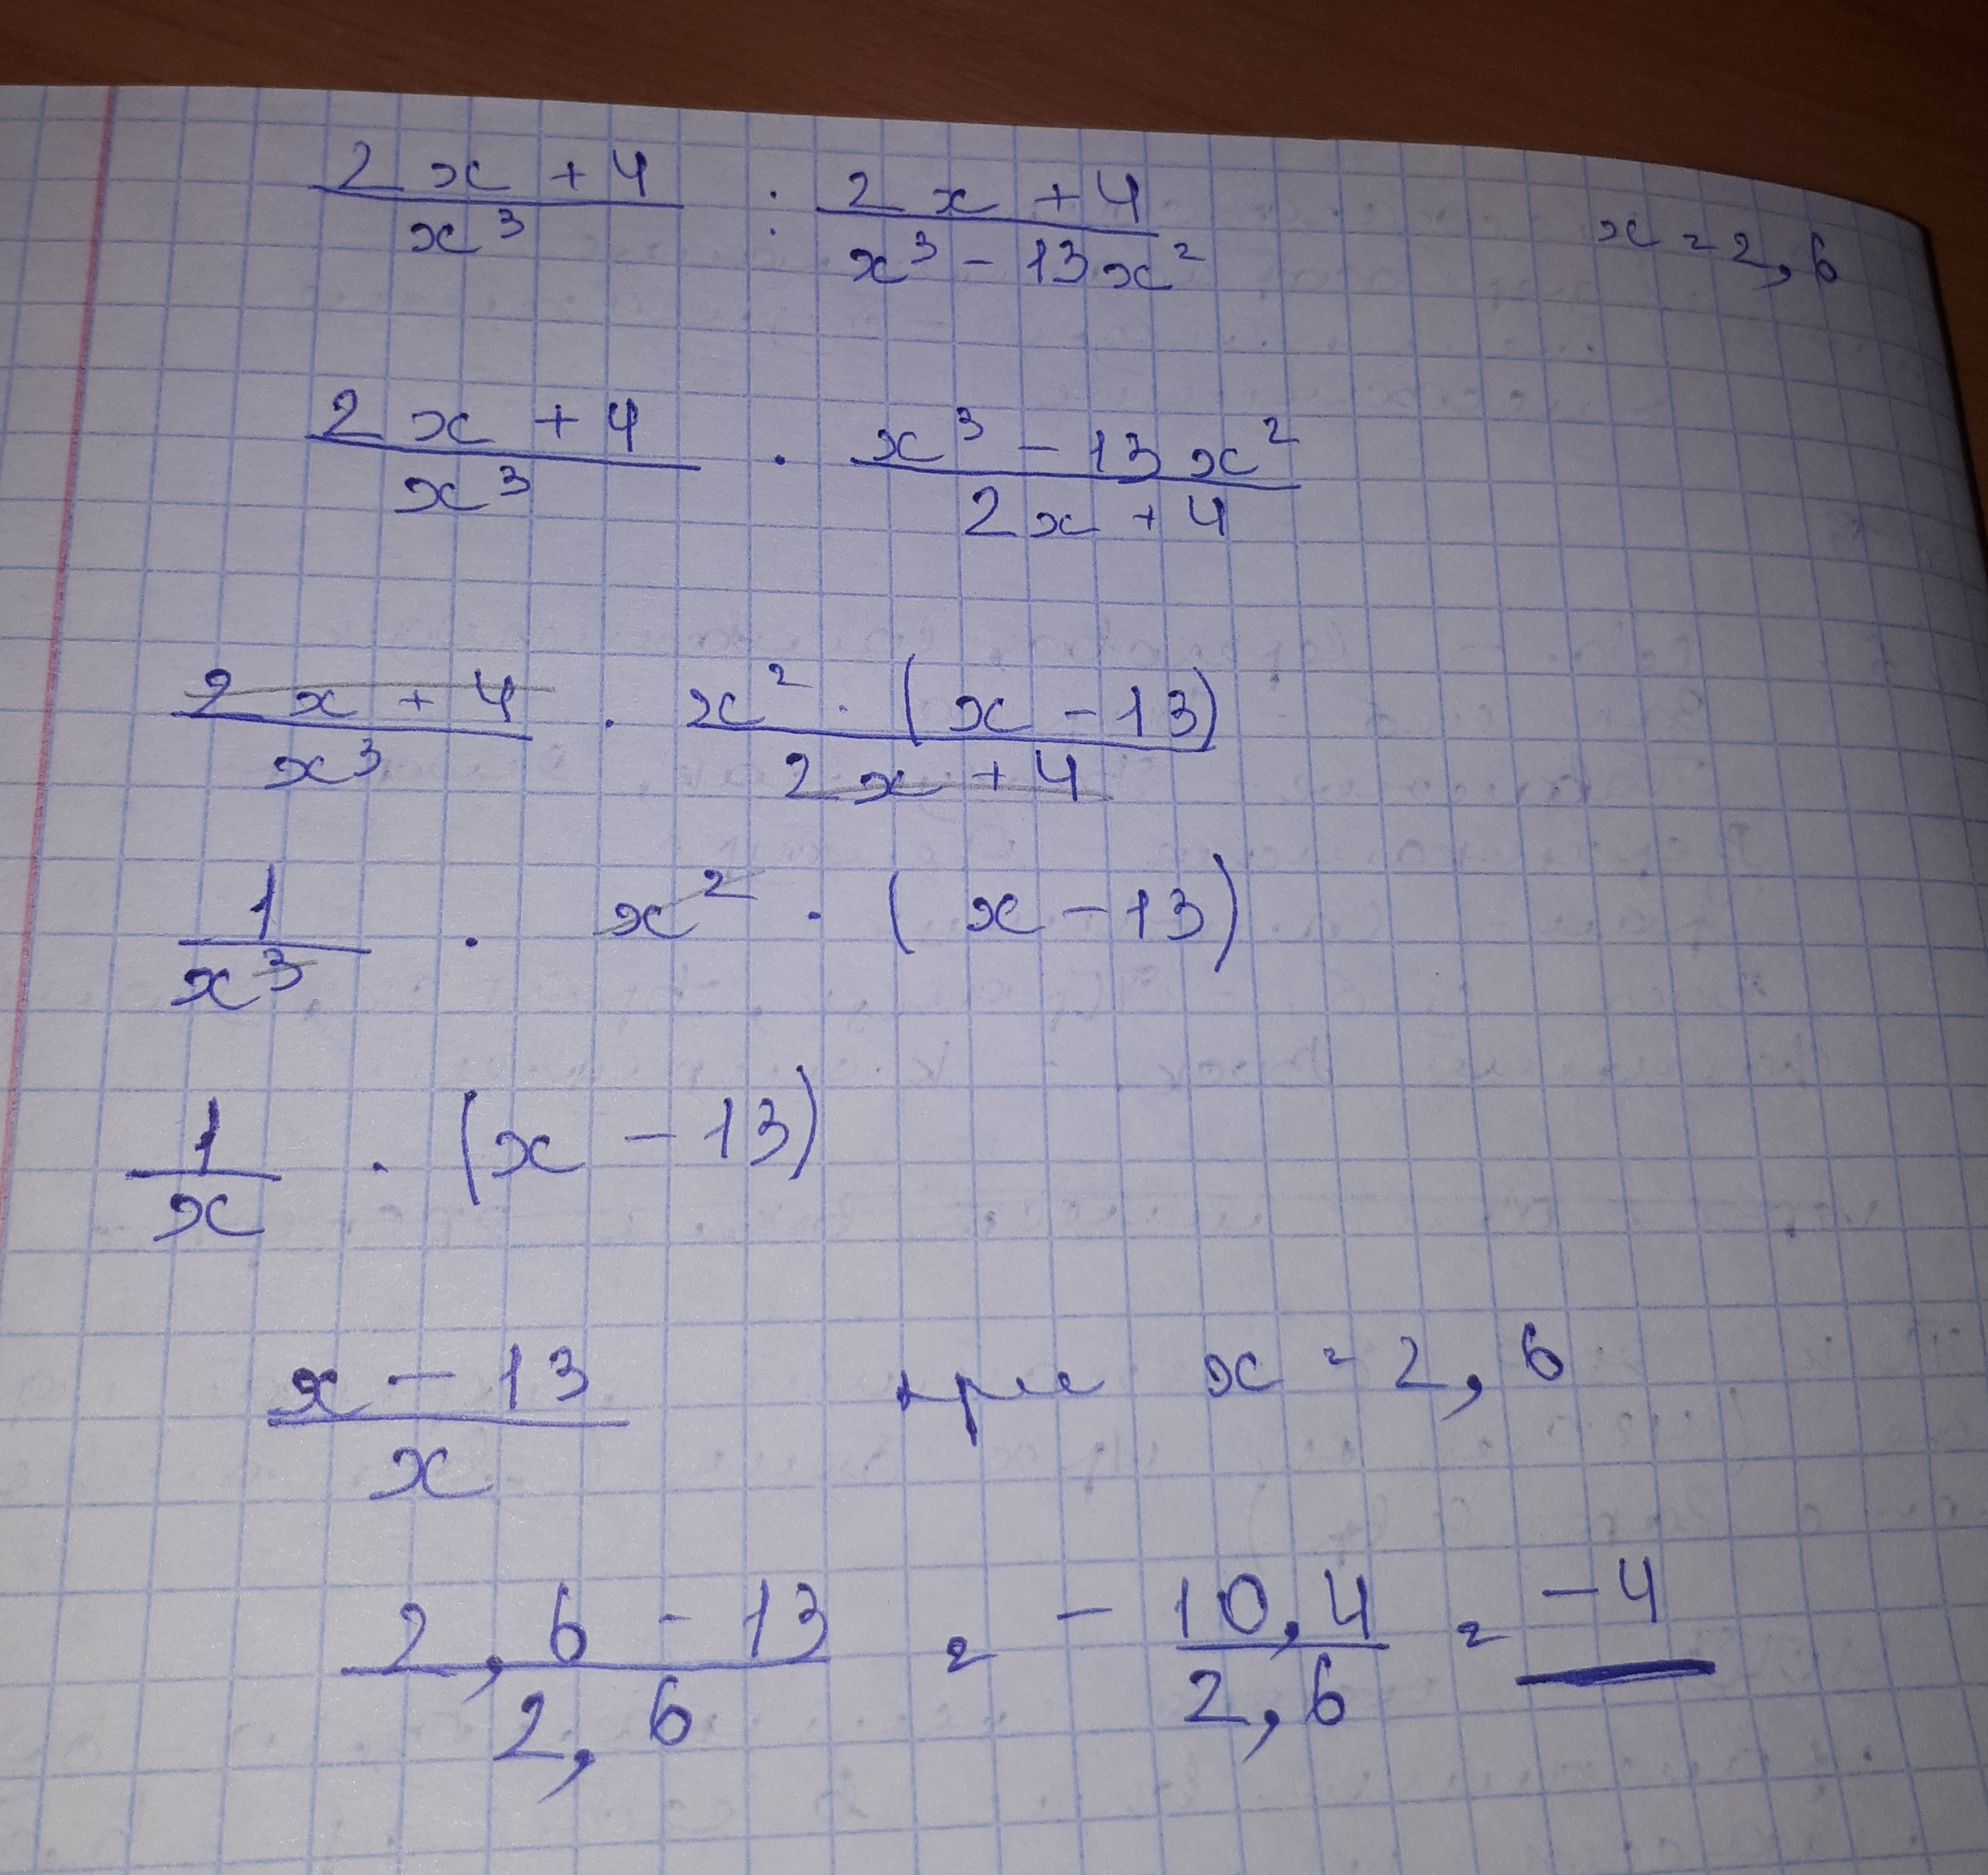 (2x + 4)/x³ : (2x + 4)/(x³ - 13x²) x = 2,6
(2x + 4)/x³ · (x³ - 13x²)/(2x + 4)
(2x + 4)/x³ · (x² · (x - 13))/(2x + 4)
1/x³ · x² · (x - 13)
1/x · (x - 13)
(x - 13)/x при x = 2,6
(2,6 - 13)/2,6 = - 10,4/2,6 = -4